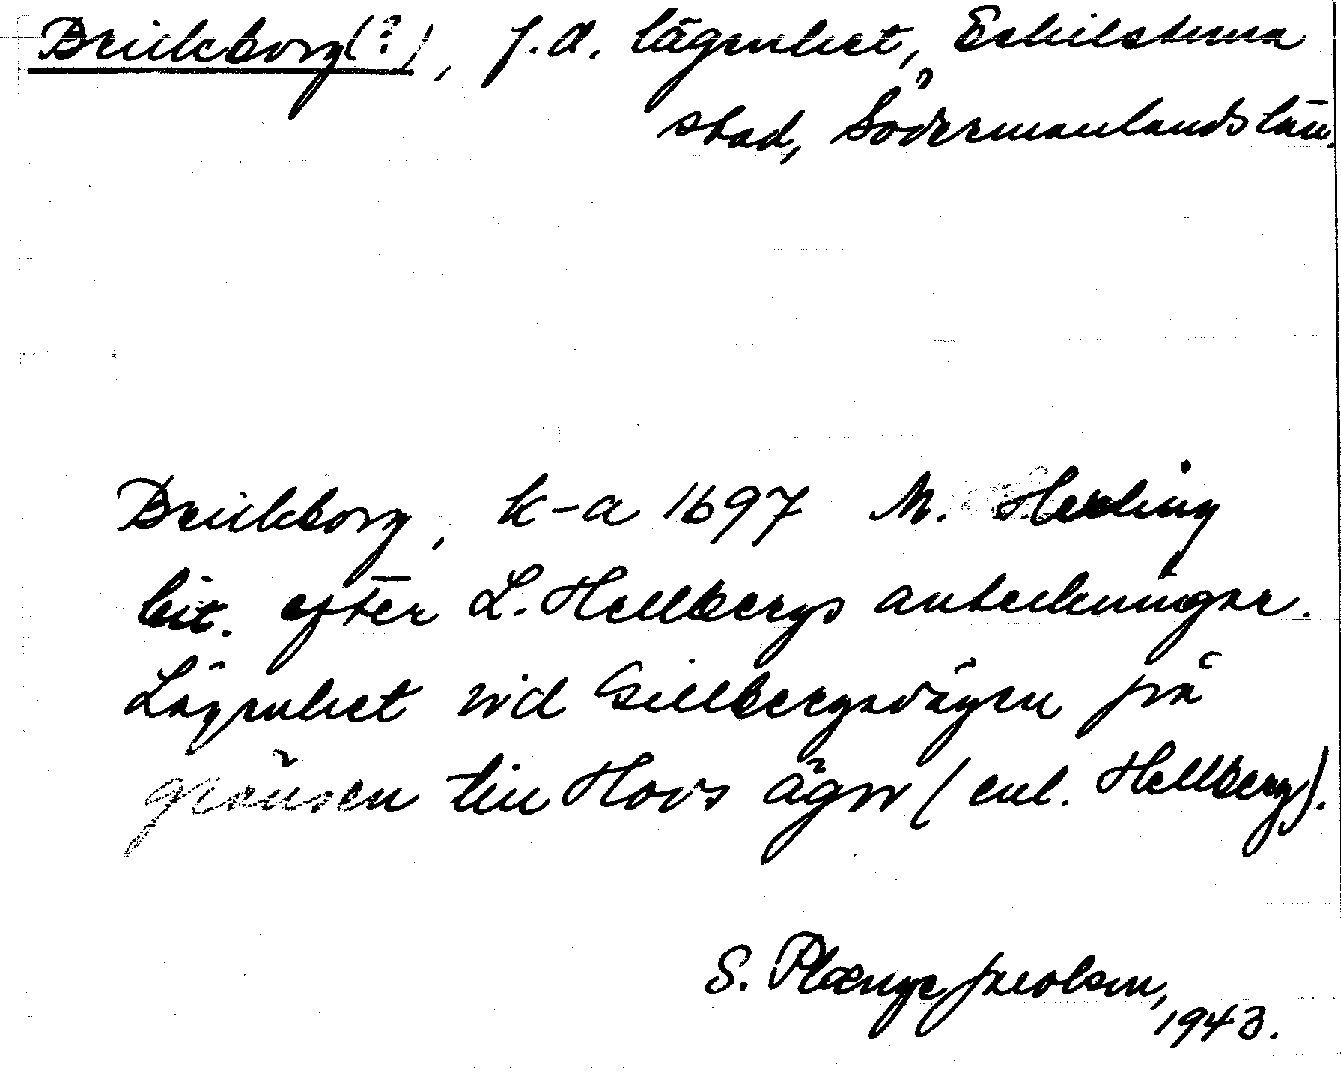 Brickeborg(?), f.d. lägenhet, Eskilstuna
stad, Södermanlands län.
Brickborg, k-a 1697 M. Herling
cit. efter L. Hellbergs anteckningar.
Lägenhet vid Gillbergavägen på
gränsen till Hovs ägor (enl. Hellberg).
S. Plænge Jacobson,
1943.